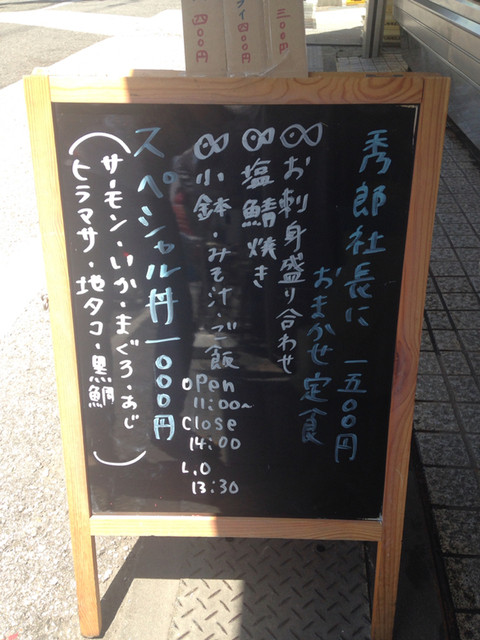 三〇〇円
フイ四〇〇円
四〇〇円
秀郎社長に
おまかせ定食
一五〇〇円
お刺身盛り合わせ
塩鯖焼き
小鉢・みそ汁・ご飯
open
11:00~
Close
14:00
L.O
13:30
スペシャル丼一〇〇〇円
(サーモン・いか・まぐろ・あじ
ヒラマサ・地タコ・黒鯛)